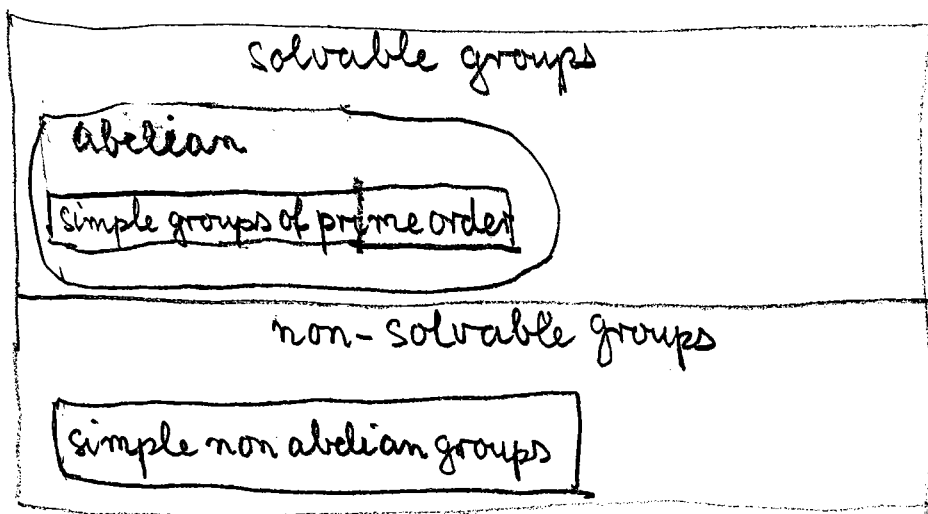 solvable groups
abelian
simple groups of prime order
non-solvable groups
simple non abelian groups